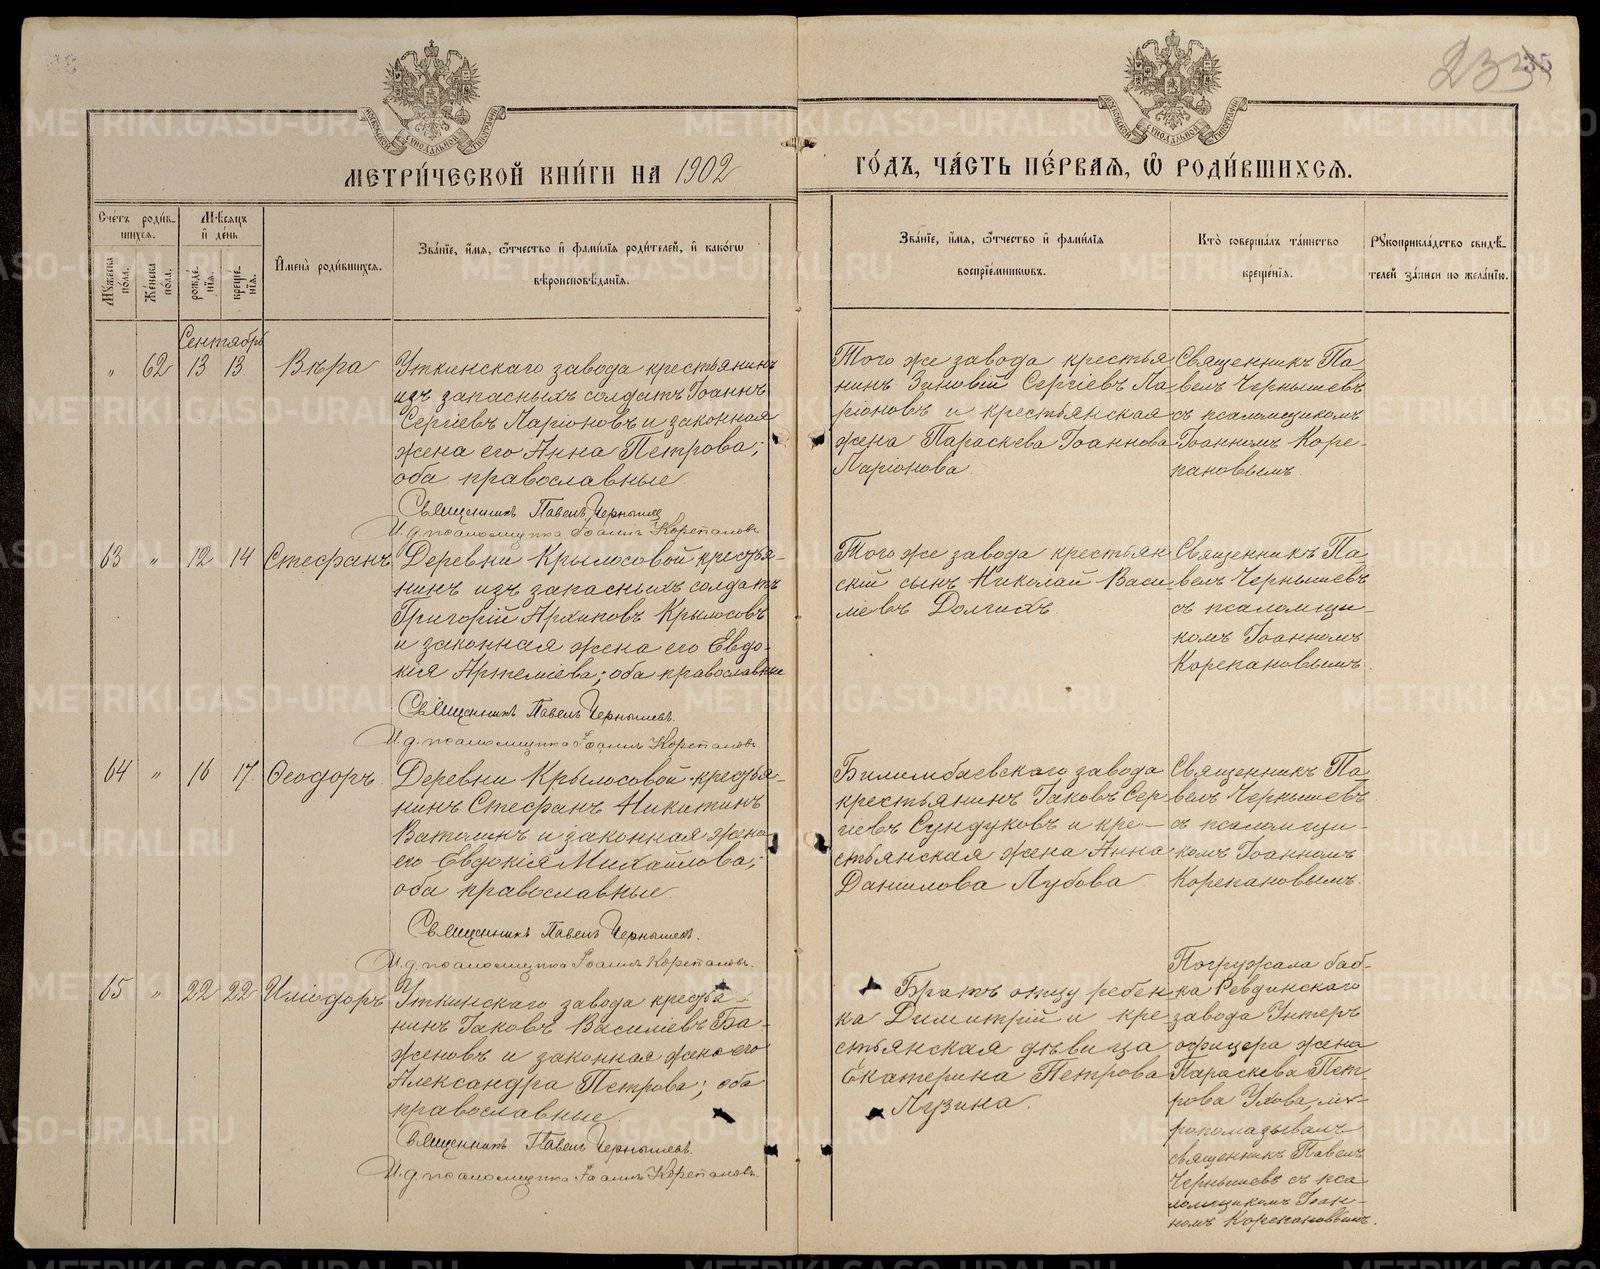 235
МЕТРИ́ЧЕСКОЙ КНИ́ГИ НА 1902
ГО́ДЪ, ЧА́СТЬ ПЕ́РВАѦ, Ѽ РОДИ́ВШИХСѦ.
Сче́тъ роди́в-
шихсѧ.
Мꙋ́жеска по́ла.
Же́нска по́ла.
Мѣ́сѧцъ
и҆ де́нь
рожде́-
нїѧ.
креще́-
нїѧ.
И҆мена̀ роди́вшихсѧ.
Зва́нїе, и҆́мѧ, ѻ҆́тчество и҆ фами́лїѧ роди́телей, и҆ како́гѡ
вѣроисповѣ́данїѧ.
Зва́нїе, и҆́мѧ, ѻ҆́тчество и҆ фами́лїѧ
воспрїе́мникѡвъ.
Кто̀ соверша́лъ та́инство
креще́нїѧ.
Рꙋкоприкла́дство свидѣ́-
телей за́писи по жела́нїю.
Сентябрь
„ 62 13 13 Вѣра
Уткинскаго завода крестьянинъ
изъ запасныхъ солдатъ Іоаннъ
Сергіевъ Ларіоновъ и законная
жена его Анна Петрова;
оба православные
Священникъ Павелъ Чернышев
И.д. псаломщика Іоаннъ Корепановъ
Того же завода крестья
нинъ Зиновій Сергіевъ Ла
ріоновъ и крестьянская
жена Параскева Іоаннова
Ларіонова
Священникъ Па
велъ Чернышевъ
съ псаломщикомъ
Іоанномъ Коре-
пановымъ
63 „ 12 14 Стефанъ
Деревни Крылосовой крестья-
нинъ изъ запасныхъ солдатъ
Григорій Архиповъ Крылосовъ
и законная жена его Евдо-
кія Артеміева; оба православные
Священникъ Павелъ Чернышевъ.
И.д. псаломщика Іоаннъ Корепановъ.
Того же завода крестьян
скій сынъ Николай Васи-
льевъ Долгихъ.
Священникъ Па
велъ Чернышевъ
съ псаломщи-
комъ Іоанномъ
Корепановымъ.
64 „ 16 17 Ѳеодоръ
Деревни Крылосовой крестья-
нинъ Стефанъ Никитинъ
Ватолинъ и законная жена
его Евдокія Михайлова;
оба православные
Священникъ Павелъ Чернышевъ.
И.д. псаломщика Іоаннъ Корепановъ.
Билимбаевскаго завода
крестьянинъ Іаковъ Сер
гіевъ Сундуковъ и кре-
стьянская жена Анна
Даніилова Лубова
Священникъ Па
велъ Чернышевъ
съ псаломщи-
комъ Іоанномъ
Корепановымъ.
65 „ 22 22 Иліодоръ
Уткинскаго завода крестья-
нинъ Іаковъ Василіевъ Ба-
женовъ и законная жена его
Александра Петрова; оба
православные
Священникъ Павелъ Чернышевъ.
И.д. псаломщика Іоаннъ Корепановъ.
Братъ отцу ребен
ка Димитрій и кре
стьянская дѣвица
Екатерина Петрова
Лузина.
Погружала баб-
ка Ревдинскаго
завода Унтеръ
офицера жена
Параскева Пет-
рова Ухова, мѵ-
ропомазывалъ
священникъ Павелъ
Чернышевъ съ пса
ломщикомъ Іоан-
номъ Корепановымъ.
METRIKI.GASO-URAL.RU